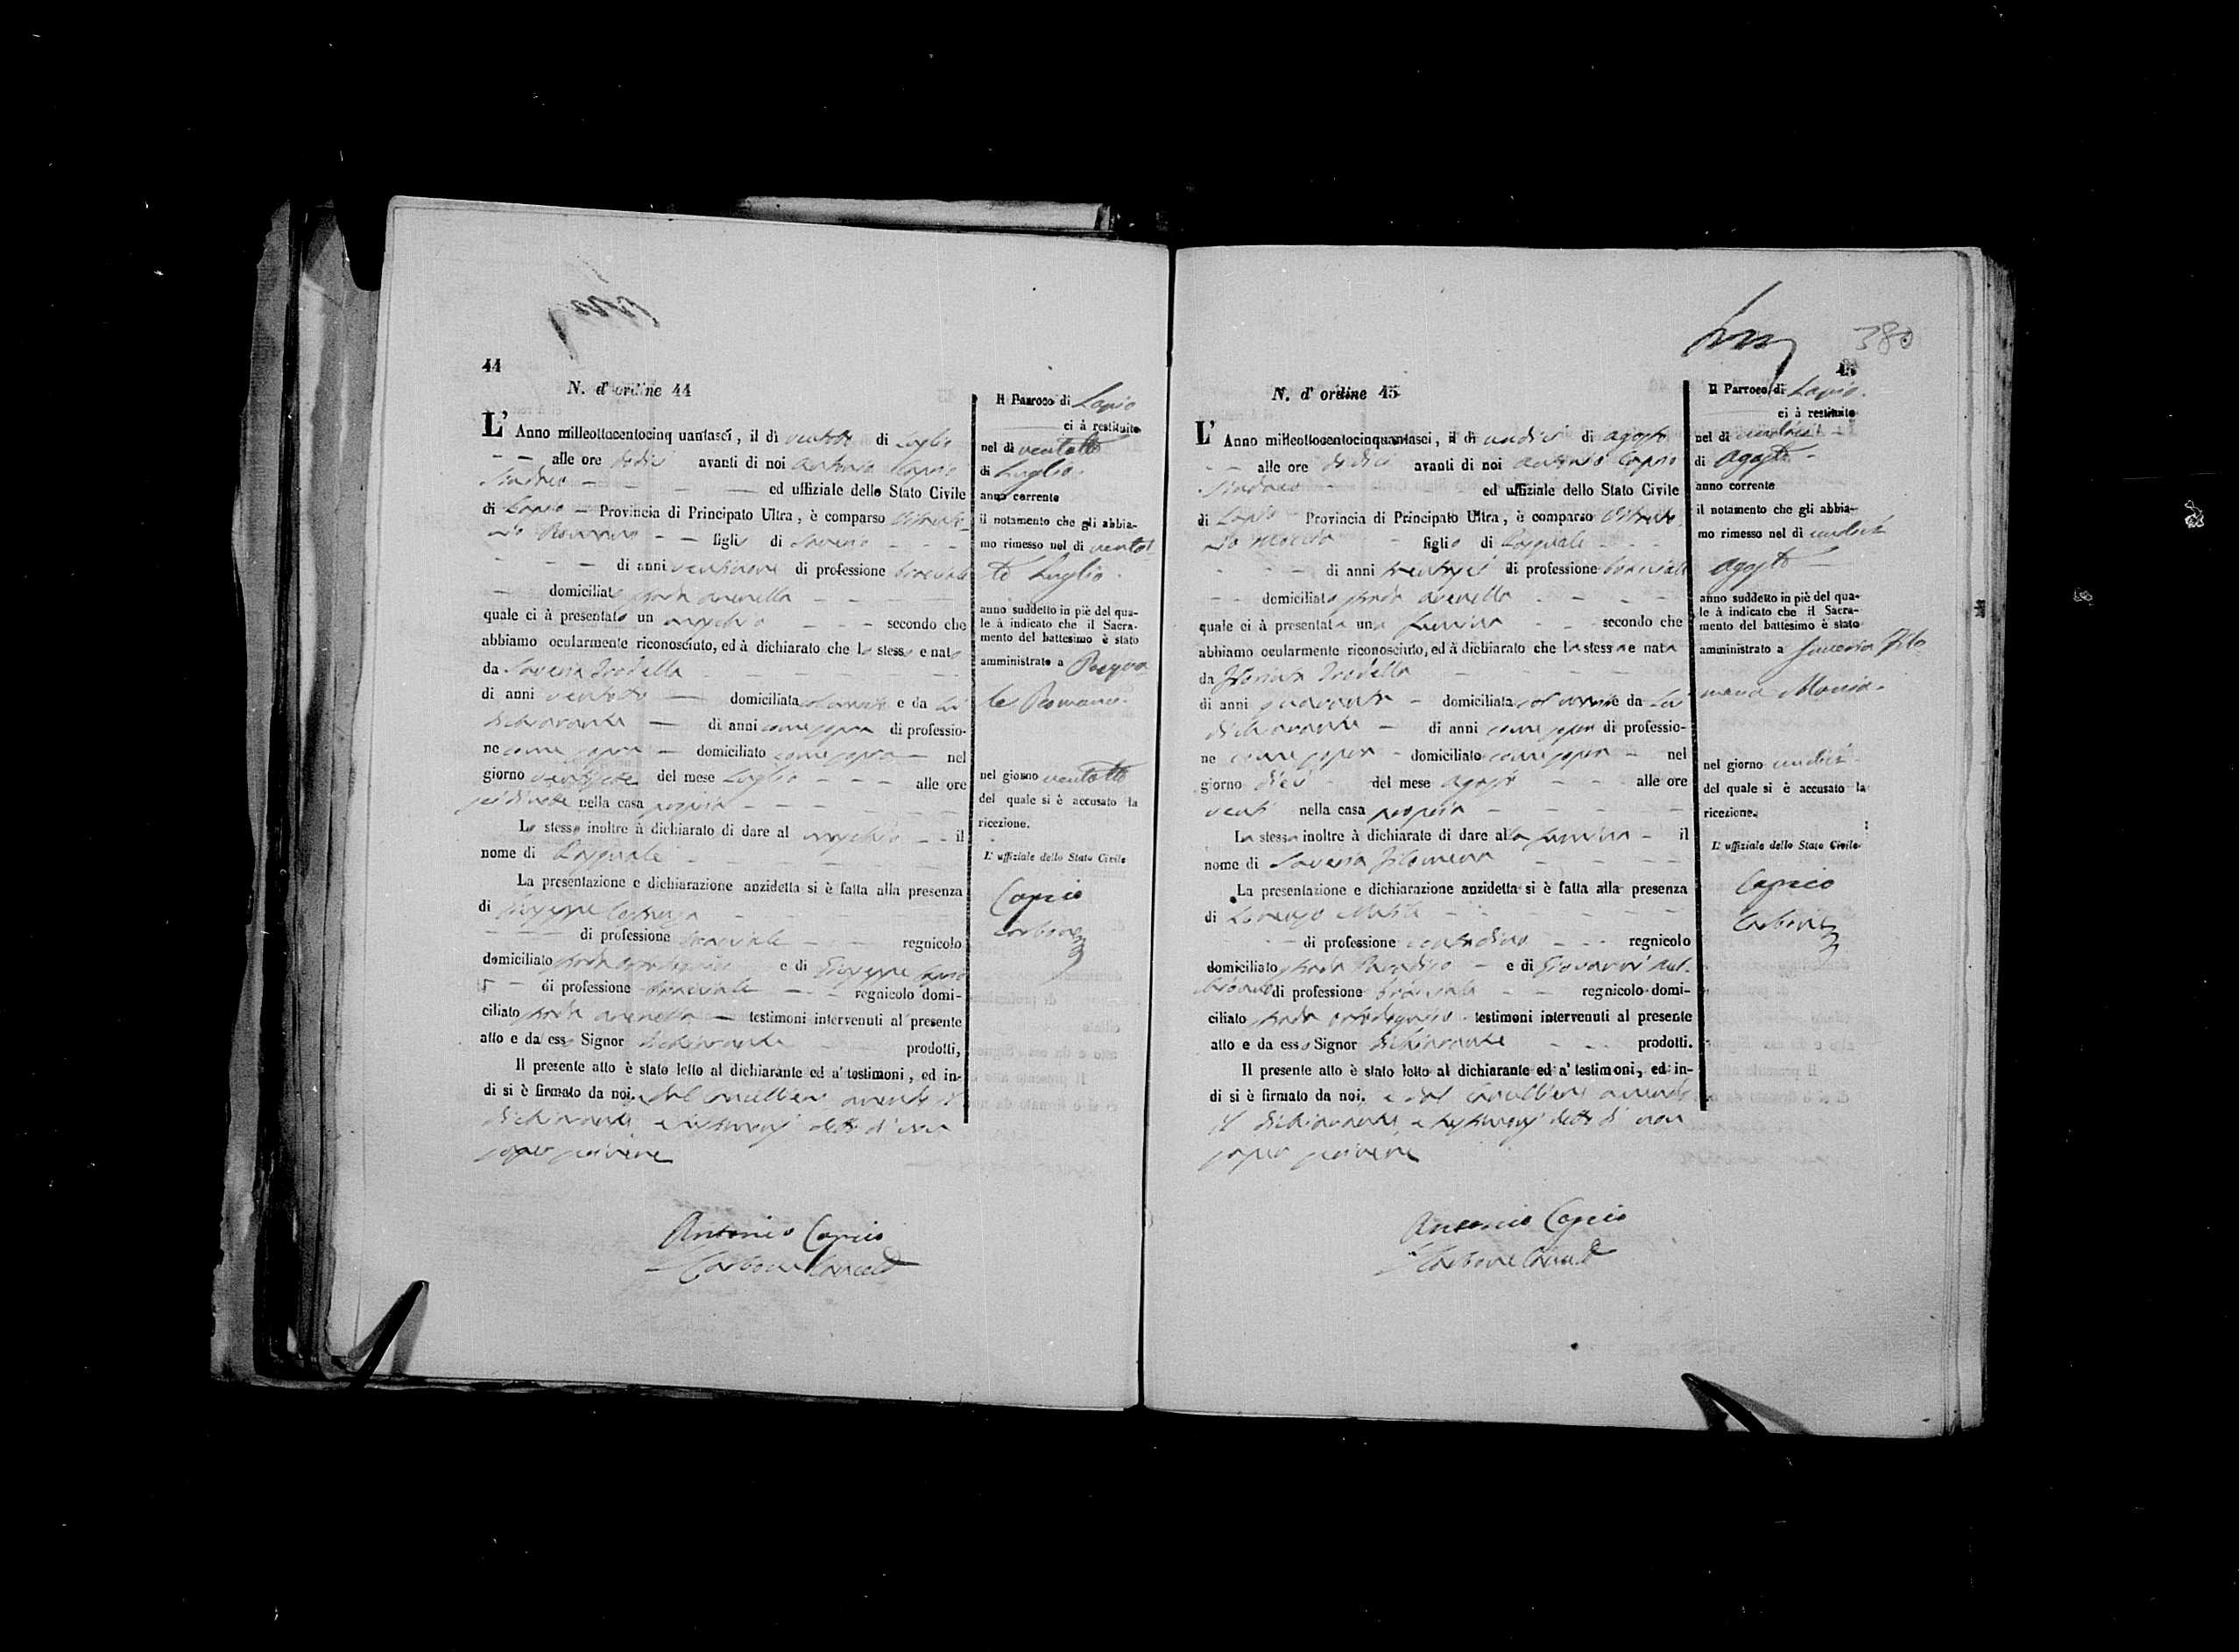 44
N. d' ordine 44
L' Anno milleottocentocinquantasei, il dì ventotto di Luglio
alle ore dodici avanti di noi Antonio Caprio
Sindaco ed uffiziale dello Stato Civile
di Lapio Provincia di Principato Ultra, è comparso
Romano figlio di Saverio
di anni ventinove di professione bracciale
domiciliato strada
quale ci à presentato un maschio secondo che
abbiamo ocularmente riconosciuto, ed à dichiarato che lo stesso e nato
da Saveria
di anni ventotto domiciliata e da lui
dichiarante di anni come sopra di professio-
ne come sopra domiciliato come sopra nel
giorno ventisette del mese Luglio alle ore
nella casa propria
Lo stesso inoltre à dichiarato di dare al maschio il
nome di Pasquale
La presentazione e dichiarazione anzidetta si è fatta alla presenza
di Giuseppe
di professione bracciale regnicolo
domiciliato strada e di Giuseppe
di professione bracciale regnicolo domi-
ciliato strada testimoni intervenuti al presente
atto e da esso Signor dichiarante prodotti,
Il presente atto è stato letto al dichiarante ed a' testimoni, ed in-
di si è firmato da noi, e dal cancelliere avendo il
dichiarante e testimonj detto di non
saper scrivere
Antonio Caprio
Carbone Cancell
Il Parroco di Lapio
ci à restituito
nel dì ventotto
di Luglio
anno corrente
il notamento che gli abbia-
mo rimesso nel dì ventot
to Luglio
anno suddetto in piè del qua-
le à indicato che il Sacra-
mento del battesimo è stato
amministrato a Pasqua
le Romano.
nel giorno ventotto
del quale si è accusato la
ricezione.
L' uffiziale dello Stato Civile
Caprio
Carbone
380
45
N. d' ordine 45
L' Anno milleottocentocinquantasei, il dì undici di agosto
alle ore dodici avanti di noi Antonio Caprio
Sindaco ed uffiziale dello Stato Civile
di Lapio Provincia di Principato Ultra, è comparso
figlio di Pasquale
di anni di professione bracciale
domiciliato strada
quale ci à presentata una femina secondo che
abbiamo ocularmente riconosciuto, ed à dichiarato che la stessa e nata
da
di anni quaranta domiciliata e da lui
dichiarante di anni come sopra di professio-
ne come sopra domiciliato come sopra nel
giorno dieci del mese agosto alle ore
venti nella casa propria
La stessa inoltre à dichiarato di dare alla femina il
nome di Saveria Filomena
La presentazione e dichiarazione anzidetta si è fatta alla presenza
di Lorenzo
di professione contadino regnicolo
domiciliato strada Paradiso e di Giovanni
di professione bracciale regnicolo domi-
ciliato strada testimoni intervenuti al presente
atto e da esso Signor dichiarante prodotti.
Il presente atto è stato letto al dichiarante ed a' testimoni, ed in-
di si è firmato da noi, e dal Cancelliere avendo
il dichiarante, e testimonj detto di non
saper scrivere
Antonio Caprio
Carbone Cancell
Il Parroco di Lapio.
ci à restituito
nel dì undici
di agosto
anno corrente
il notamento che gli abbia-
mo rimesso nel dì undici
agosto
anno suddetto in piè del qua-
le à indicato che il Sacra-
mento del battesimo è stato
amministrato a Saveria Filo
mena
nel giorno undici
del quale si è accusato la
ricezione.
L' uffiziale dello Stato Civile
Caprio
Carbone